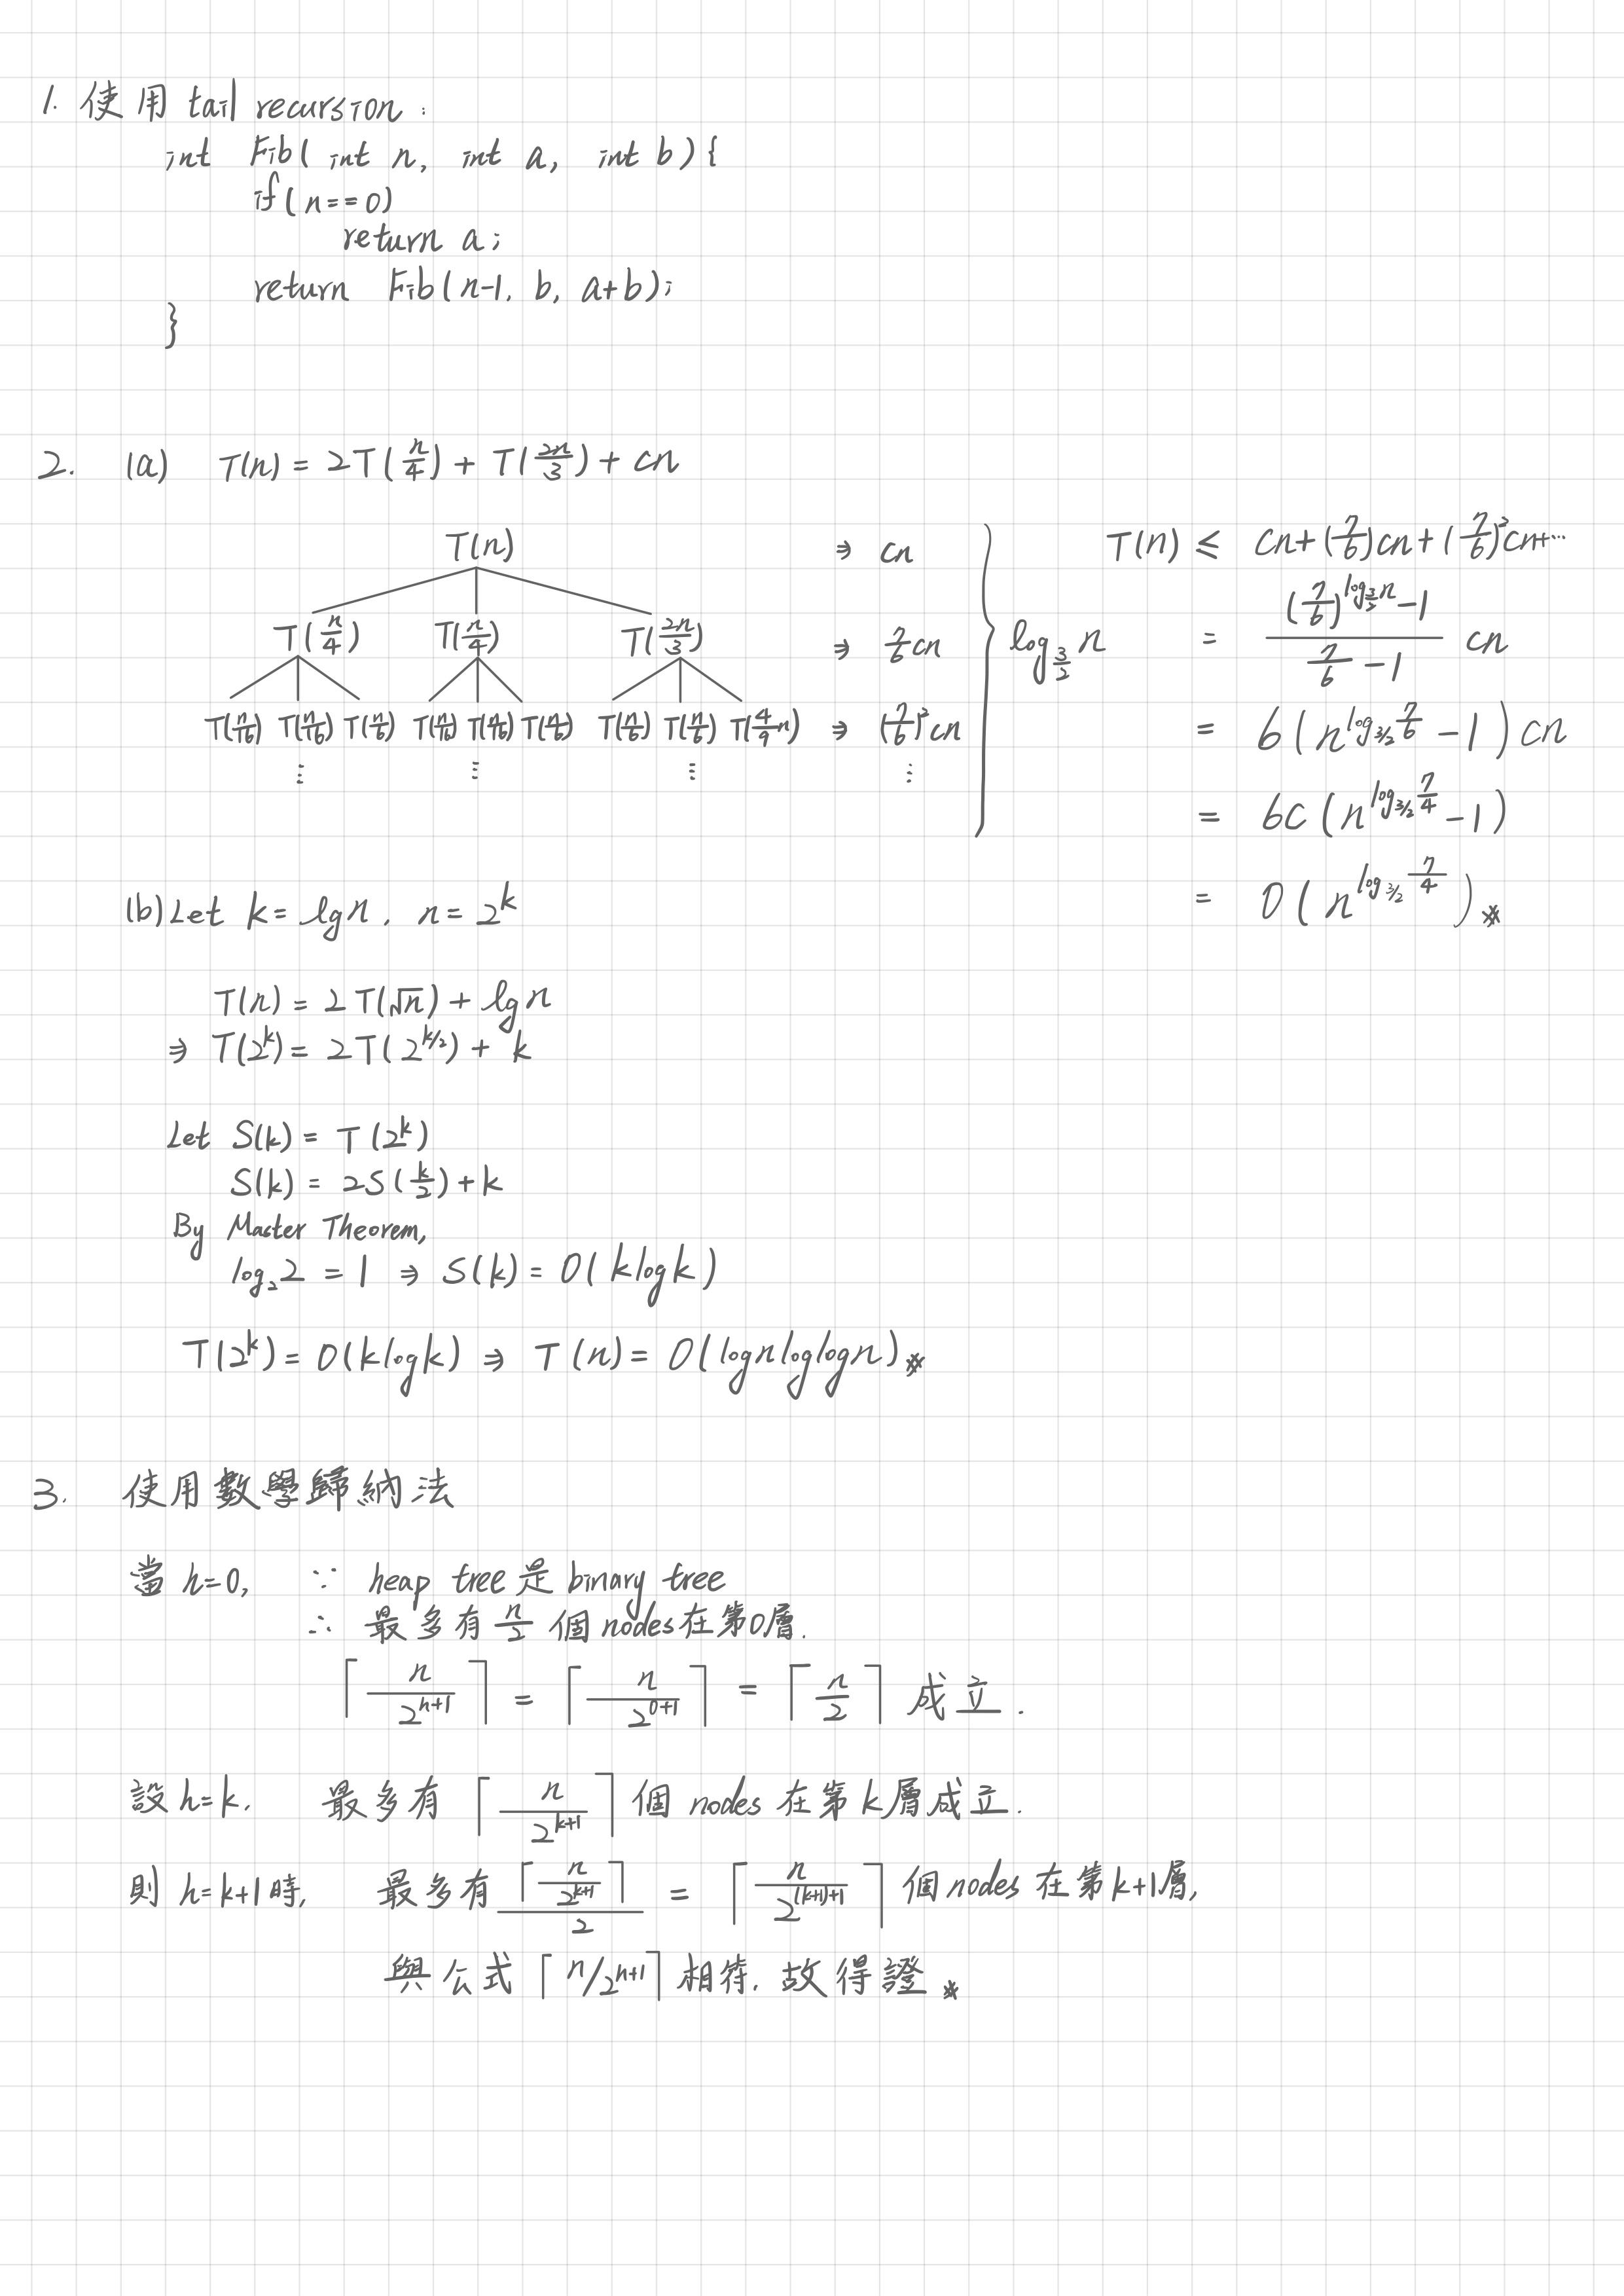 1. 使用 tail recursion :
int Fib( int n, int a, int b) {
if( n == 0)
return a;
return Fib( n-1, b, a+b);
}
2. (a) T(n) = 2T(n/4) + T(2n/3) + cn
T(n) ⇒ cn
T(n/4) T(n/4) T(2n/3) ⇒ 7/6 cn
T(n/16) T(n/16) T(n/6) T(n/16) T(n/16) T(n/6) T(n/6) T(n/6) T(4/9 n) ⇒ (7/6)² cn
⋮ ⋮ ⋮ ⋮
} log_{3/2} n
T(n) ≤ cn + (7/6)cn + (7/6)²cn + ⋯
= ((7/6)^{log_{3/2} n} - 1) / (7/6 - 1) cn
= 6(n^{log_{3/2} 7/6} - 1) cn
= 6c(n^{log_{3/2} 7/4} - 1)
= O(n^{log_{3/2} 7/4}) ※
(b) Let k = lg n, n = 2^k
T(n) = 2T(√n) + lg n
⇒ T(2^k) = 2T(2^{k/2}) + k
Let S(k) = T(2^k)
S(k) = 2S(k/2) + k
By Master Theorem,
log₂2 = 1 ⇒ S(k) = O(k log k)
T(2^k) = O(k log k) ⇒ T(n) = O(log n log log n) ※
3. 使用數學歸納法
當 h=0, ∵ heap tree 是 binary tree
∴ 最多有 n/2 個 nodes 在第0層.
⌈n/2^{h+1}⌉ = ⌈n/2^{0+1}⌉ = ⌈n/2⌉ 成立.
設 h=k, 最多有 ⌈n/2^{k+1}⌉ 個 nodes 在第k層成立.
則 h=k+1時, 最多有 ⌈n/2^{k+1}⌉/2 = ⌈n/2^{(k+1)+1}⌉ 個 nodes 在第k+1層,
與公式 ⌈n/2^{h+1}⌉ 相符, 故得證 ※